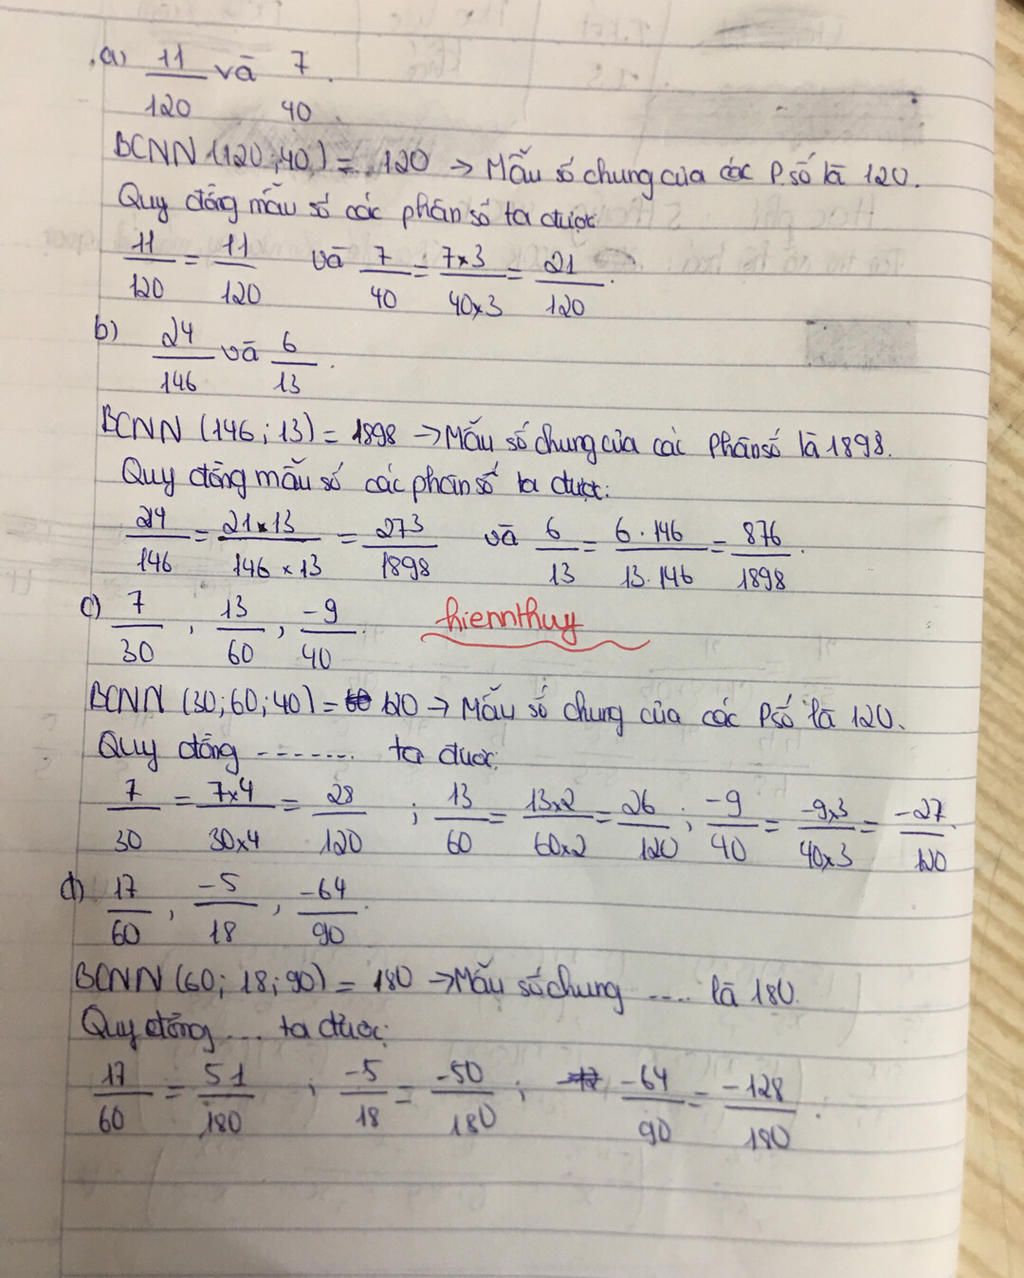 a) 11/120 và 7/40.
BCNN (120;40) = 120 → Mẫu số chung của các P.số là 120.
Quy đồng mẫu số các phân số ta được
11/120 = 11/120 và 7/40 = 7x3/40x3 = 21/120.
b) 24/146 và 6/13.
BCNN (146; 13) = 1898 → Mẫu số chung của các Phân số là 1898.
Quy đồng mẫu số các phân số ta được:
24/146 = 21x13/146x13 = 273/1898 và 6/13 = 6.146/13.146 = 876/1898.
c) 7/30, 13/60, -9/40.
hiennthuy
BCNN (30;60;40) = 120 → Mẫu số chung của các Psố là 120.
Quy đồng ........ ta được:
7/30 = 7x4/30x4 = 28/120 ; 13/60 = 13x2/60x2 = 26/120 ; -9/40 = -9x3/40x3 = -27/120.
d) 17/60, -5/18, -64/90.
BCNN (60; 18; 90) = 180 → Mẫu số chung .... là 180.
Quy đồng ... ta được:
17/60 = 51/180 ; -5/18 = -50/180 ; -64/90 = -128/180.